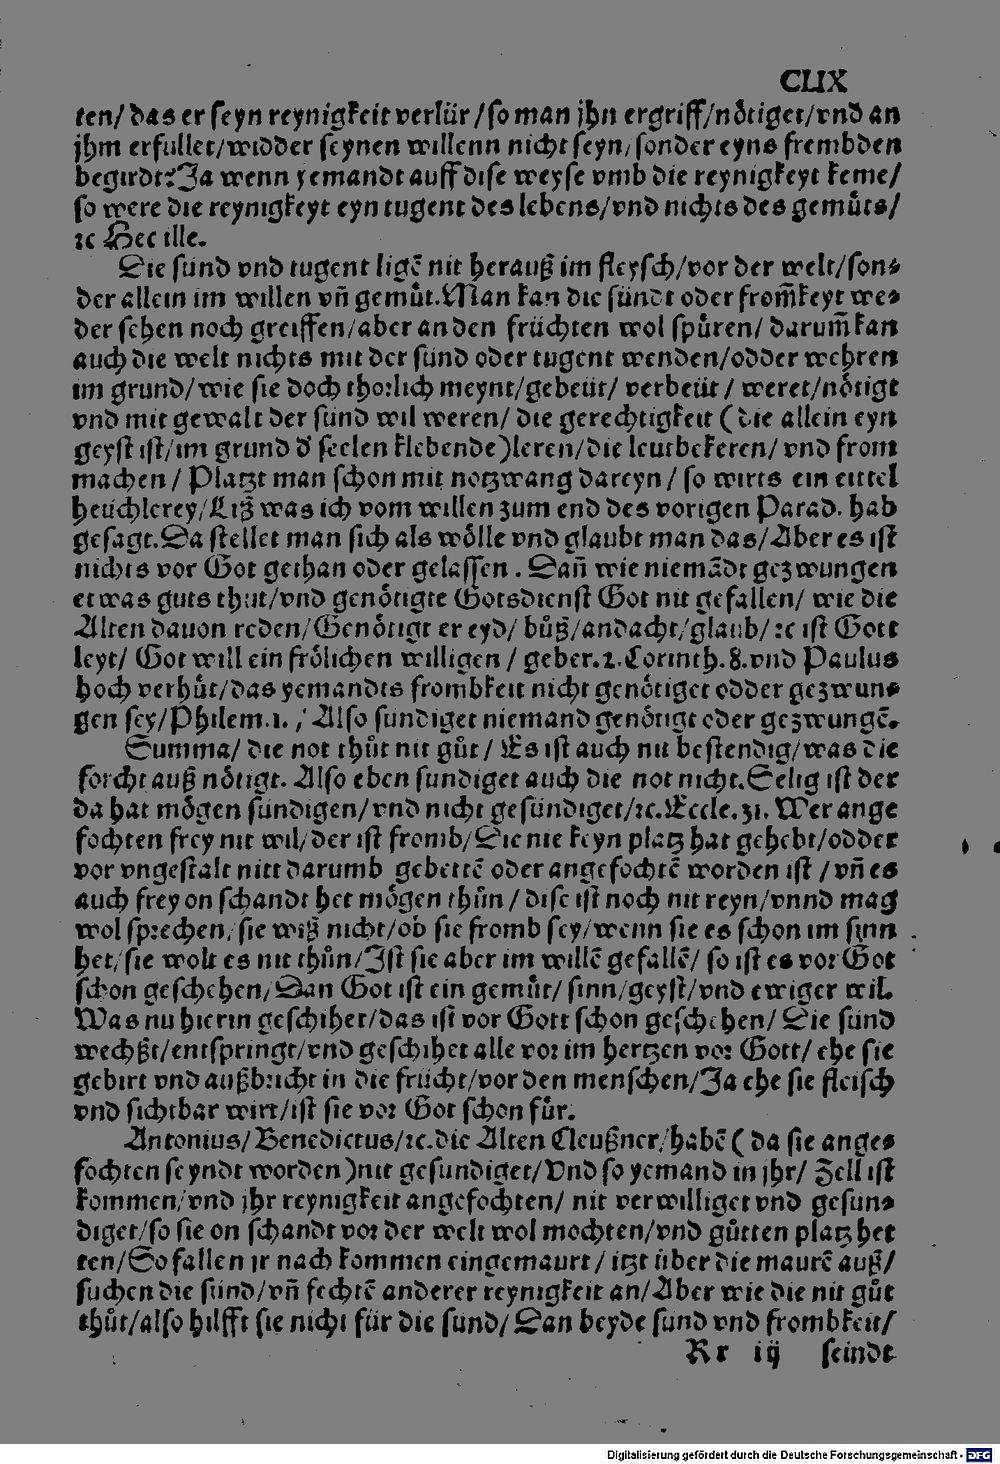 CLIX
ten/ das er seyn reynigkeit verlür /so man jhn ergriff/nötiget/vnd an
jhm erfullet/widder seynen willenn nicht seyn/sonder eyns frembden
begirdt? Ja wenn yemandt auff dise weyse vmb die reynigkeyt keme/
so were die reynigkeyt eyn tugent des lebens/vnd nichts des gemüts/
ꝛc Hec ille.
Die sünd vnd tugent ligē nit herauß im fleysch/vor der welt/son⸗
der allein im willen vñ gemüt. Man kan die sündt oder from̄keyt we⸗
der sehen noch greiffen/aber an den früchten wol spüren/ darum̄ kan
auch die welt nichts mit der sünd oder tugent wenden/odder wehren
im grund/wie sie doch thorlich meynt/gebeüt/ verbeüt / weret/nötigt
vnd mit gewalt der sünd wil weren/ die gerechtigkeit ( die allein eyn
geyst ist/im grund d' seelen klebende)leren/die leut bekeren/ vnd from
machen / Platzt man schon mit notzwang dareyn / so wirts ein eittel
heüchlerey/Liß was ich vom willen zum end des vorigen Parad. hab
gesagt. Da stellet man sich als wölle vnd glaubt man das/Aber es ist
nichts vor Got gethan oder gelassen . Dañ wie niemādt gezwungen
etwas guts thut/vnd genötigte Gotsdienst Got nit gefallen/ wie die
Alten dauon reden/Genötigter eyd/ bůß/andacht/glaub/ ꝛc ist Gott
leyt/ Got will ein frölichen willigen / geber. 2. Corinth. 8. vnd Paulus
hoch verhüt/das yemandts frombkeit nicht genötiget odder gezwun⸗
gen sey/Philem. 1. / Also sündiget niemand genötigt oder gezwungē.
Summa/ die not thůt nit gůt / Es ist auch nit bestendig/was die
forcht auß nötigt. Also eben sündiget auch die not nicht. Selig ist der
da hat mögen sündigen/vnd nicht gesündiget/ꝛc. Eccle. 31. Wer ange
fochten frey nit wil/der ist fromb/Die nie keyn platz hat gehebt/odder
vor vngestalt nitt darumb gebettē oder angefochtē worden ist / vñ es
auch frey on schandt het mögen thůn / dise ist noch nit reyn/vnnd mag
wol sprechen/sie wiß nicht/ob sie fromb sey/wenn sie es schon im sinn
het/sie wolt es nit thůn/Ist sie aber im willē gefallē/ so ist es vor Got
schon geschehen/Dan Got ist ein gemüt/ sinn/geyst/vnd ewiger wil.
Was nu hierin geschihet/das ist vor Gott schon geschehen/ Die sünd
wechßt/entspringt/vnd geschihet alle vor im hertzen vor Gott/ ehe sie
gebirt vnd außbricht in die frücht/vor den menschen/Ja ehe sie fleisch
vnd sichtbar wirt/ist sie vor Got schon für.
Antonius/Benedictus/ꝛc. die Alten Cleußner/habē ( da sie ange⸗
fochten seyndt worden)nit gesundiget/Vnd so yemand in jhr/ Zell ist
kommen/vnd jhr reynigkeit angefochten/ nit verwilliget vnd gesün⸗
diget/so sie on schandt vor der welt wol mochten/vnd gůtten platz het
ten/So fallen jr nach kommen eingemaurt / itzt über die maurē auß/
suchen die sünd/vñ fechtē anderer reynigkeit an/Aber wie die nit gůt
thůt/also hilfft sie nicht für die sünd/Dan beyde sünd vnd frombkeit/
Rr iij seindt
Digitalisierung gefördert durch die Deutsche Forschungsgemeinschaft - DFG